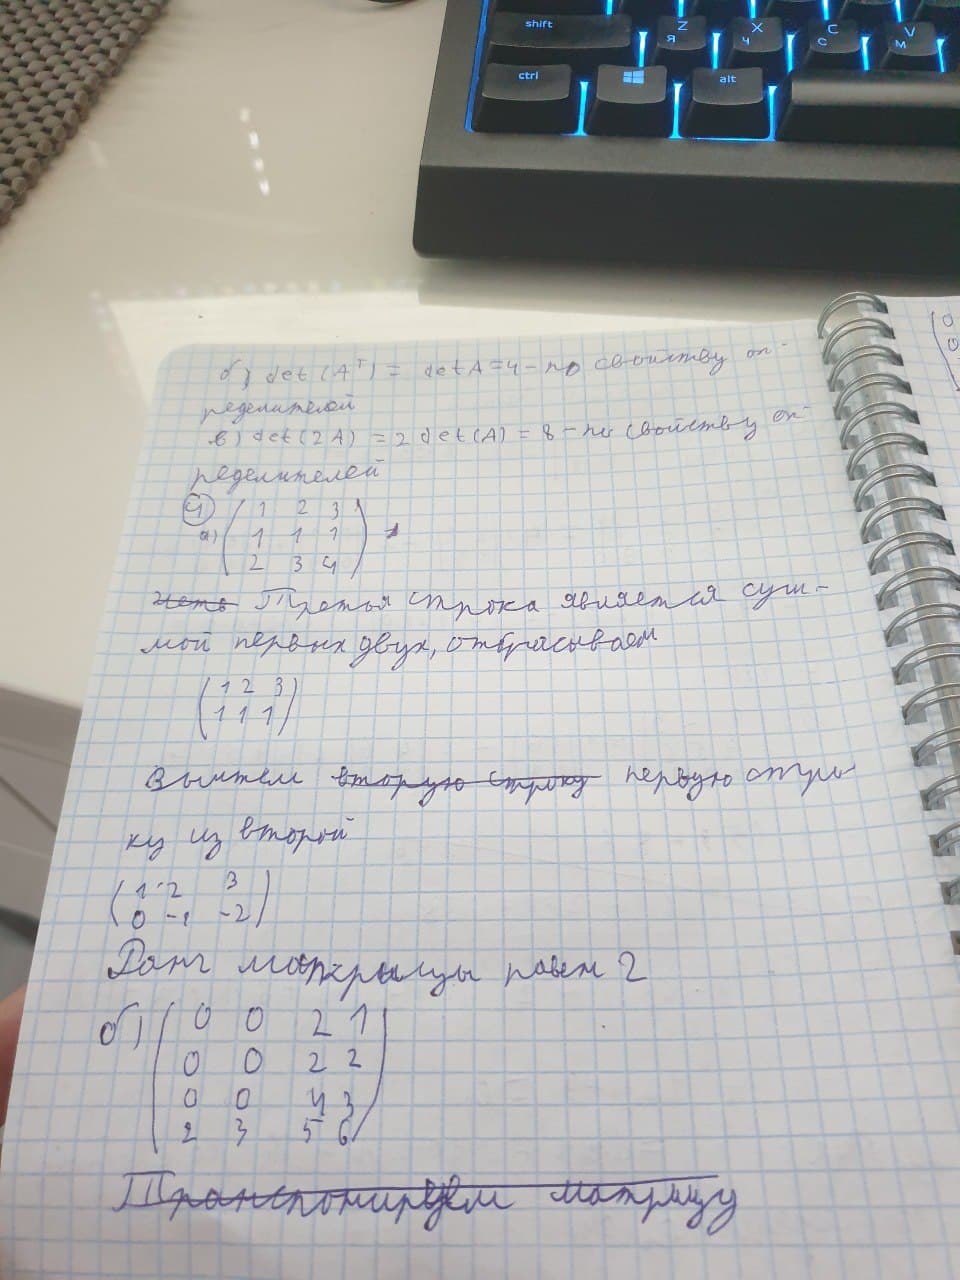 shift
Z Я
X Ч
C С
V М
ctrl
alt
б) det(Aᵀ) = detA = 4 - по свойству оп-
ределителей
в) det(2A) = 2 det(A) = 8 - по свойству оп-
ределителей
4
а) ( 1 2 3 )
1 1 1
2 3 4
Третья строка является сум-
мой первых двух, отбрасываем
( 1 2 3 )
1 1 1
Вычтем вторую строку первую стро-
ку из второй
( 1 2 3 )
0 -1 -2
Ранг матрицы равен 2
б) ( 0 0 2 1 )
0 0 2 2
0 0 4 3
2 3 5 6
Транспонируем матрицу